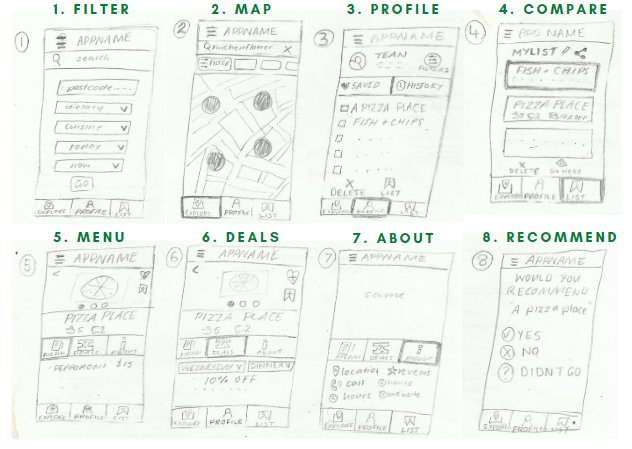 1. FILTER
2. MAP
3. PROFILE
4. COMPARE
1
APPNAME
search
postcode...
dietary
cuisine
today
now
GO
EXPLORE PROFILE LIST
2
APPNAME
X
FILTER
EXPLORE PROFILE LIST
3
APPNAME
TEAN
FILTERS
SAVED HISTORY
A PIZZA PLACE
FISH + CHIPS
X
DELETE LIST
EXPLORE PROFILE LIST
4
APP NAME
MY LIST
FISH + CHIPS
PIZZA PLACE
X
DELETE GO HERE
EXPLORE PROFILE LIST
5. MENU
6. DEALS
7. ABOUT
8. RECOMMEND
5
APPNAME
<
PIZZA PLACE
MENU DEALS ABOUT
PEPPERONI $15
EXPLORE PROFILE LIST
6
APPNAME
<
PIZZA PLACE
MENU DEALS ABOUT
WEDNESDAY DINNER
10% OFF
EXPLORE PROFILE LIST
7
APPNAME
same
MENU DEALS ABOUT
location reviews
call hours
hours
EXPLORE PROFILE LIST
8
APPNAME
WOULD YOU
RECOMMEND
"A pizza place"
YES
NO
? DIDNT GO
EXPLORE PROFILE LIST